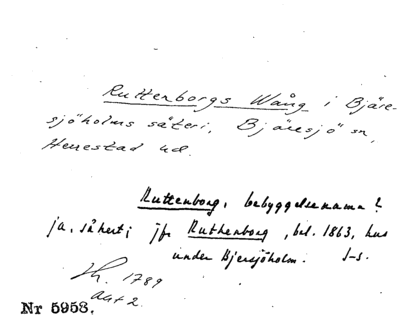 Ruttenborgs Wång i Bjäre-
sjöholms säteri, Bjäresjö sn,
Herrestad hd.
Ruttenborg, bebyggelsenamn?
ja, säkert; jfr Ruthenborg, bel. 1863, hus
under Bjersjöholm. J-s.
1789
Akt 2
Nr 5958.